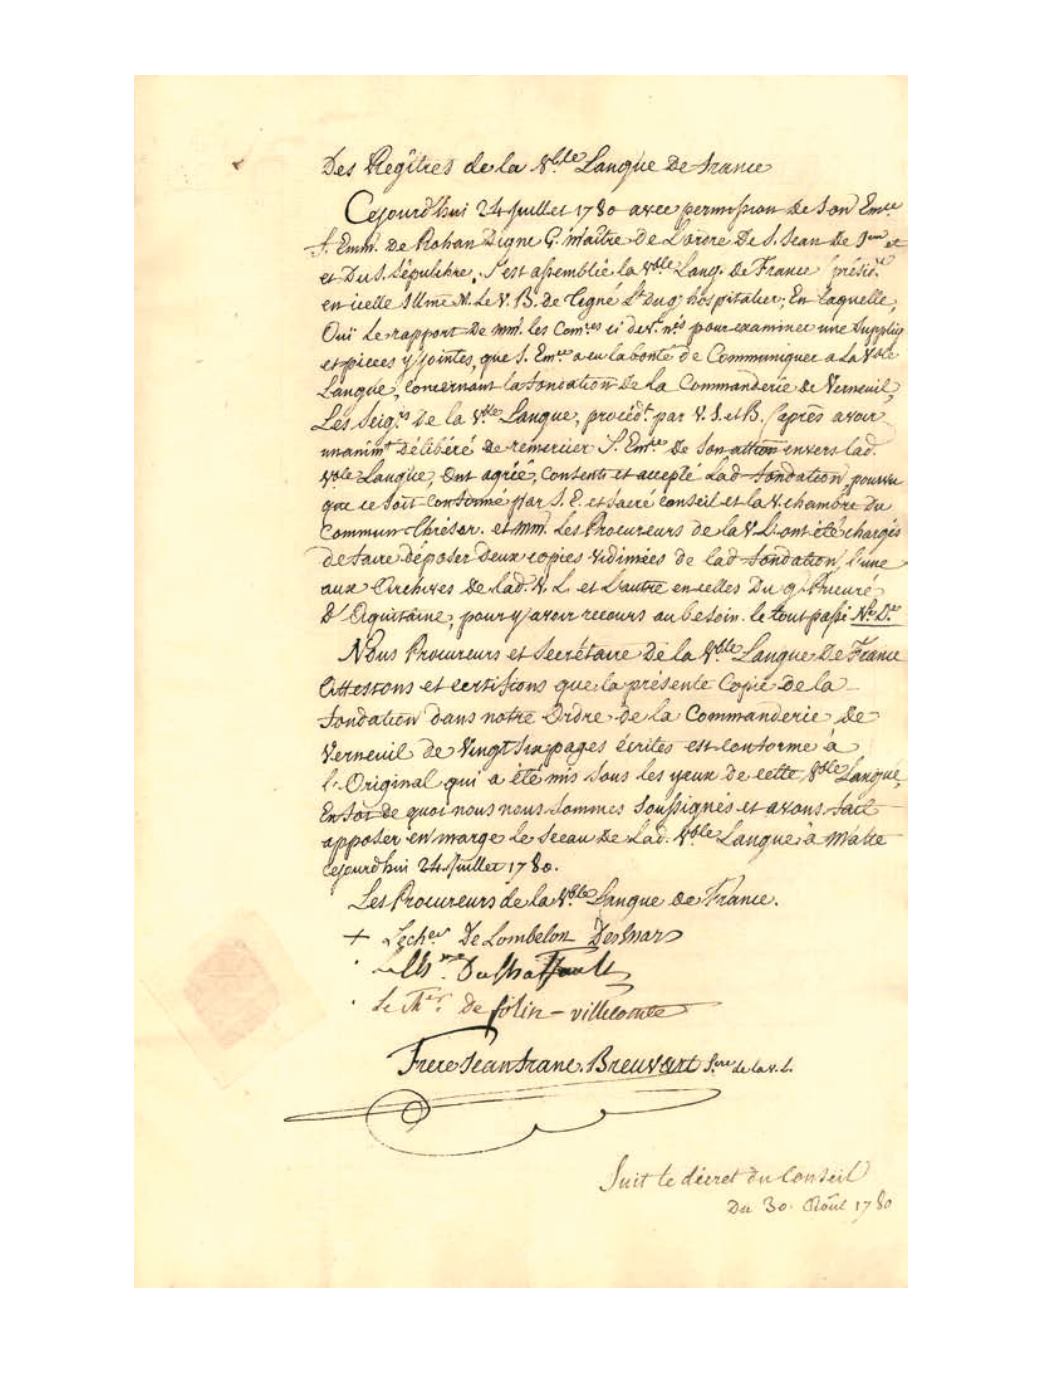 Des Regîtres de la V.ble Langue De France
Cejourd'hui 24 Juillet 1780 avec permission De Son Em.ce
F. Emm. de Rohan Digne G. Maître De L'ordre De S. Jean de Jem et
et Du S. Sépulchre, S'est assemblée la Vble Lang. de France présid.te
en icelle Illme N. Le V. B. de Tigné Lt Du g. hospitalier; En laquelle,
Oui Le rapport De mm. les Com.res ci dev.t n.és pour examiner une Suppliq
et pieces y jointes, que S. Em.ce a eu la bonté de Communiquer a la Vble
Langue, concernant la fondation de la Commanderie de Verneuil,
Les Seig.rs De la V.ble Langue, procéd.t par V. S. et B. (après avoir
unanim.t Délibéré de remercier S. Em.ce de Son attion envers lad.
Vble Langue, Ont agréé, Consenti et accepté Lad. fondation, pourvu
que ce Soit Confirmé par S. E. et Sacré conseil et la V. chambre Du
Commun-Thrésor. et mm. Les Procureurs de la V. L. ont été chargés
de faire déposer Deux copies vidimées de lad. fondation, l'une
aux Archives de lad. V. L. et L'autre en celles Du g.d Prieuré
D'Aquitaine, pour y avoir recours au besoin. le tout passé Ne. De.
Nous Procureurs et Secrétaire De la V.ble Langue De France
Attestons et certifions que la présente Copie de la
fondation dans notre Ordre de la Commanderie de
Verneuil de Vingt Six pages écrites est conforme à
l'Original qui a été mis Sous les yeux de cette Vble Langue,
En foi de quoi nous nous Sommes Soussignés et avons fait
apposer en marge le Sceau De Lad. Vble Langue à Malte
cejourd'hui 24 Juillet 1780.
Les Procureurs de la V.ble Langue de France.
+ Le cher De Lombelon Desessars
Le Ch.er Du Chaffault
Le Cher. de folin - villecomte
Frere Jean franc. Breuvart S.re de la v. L.
Suit le décret du Conseil
Du 30. Août 1780